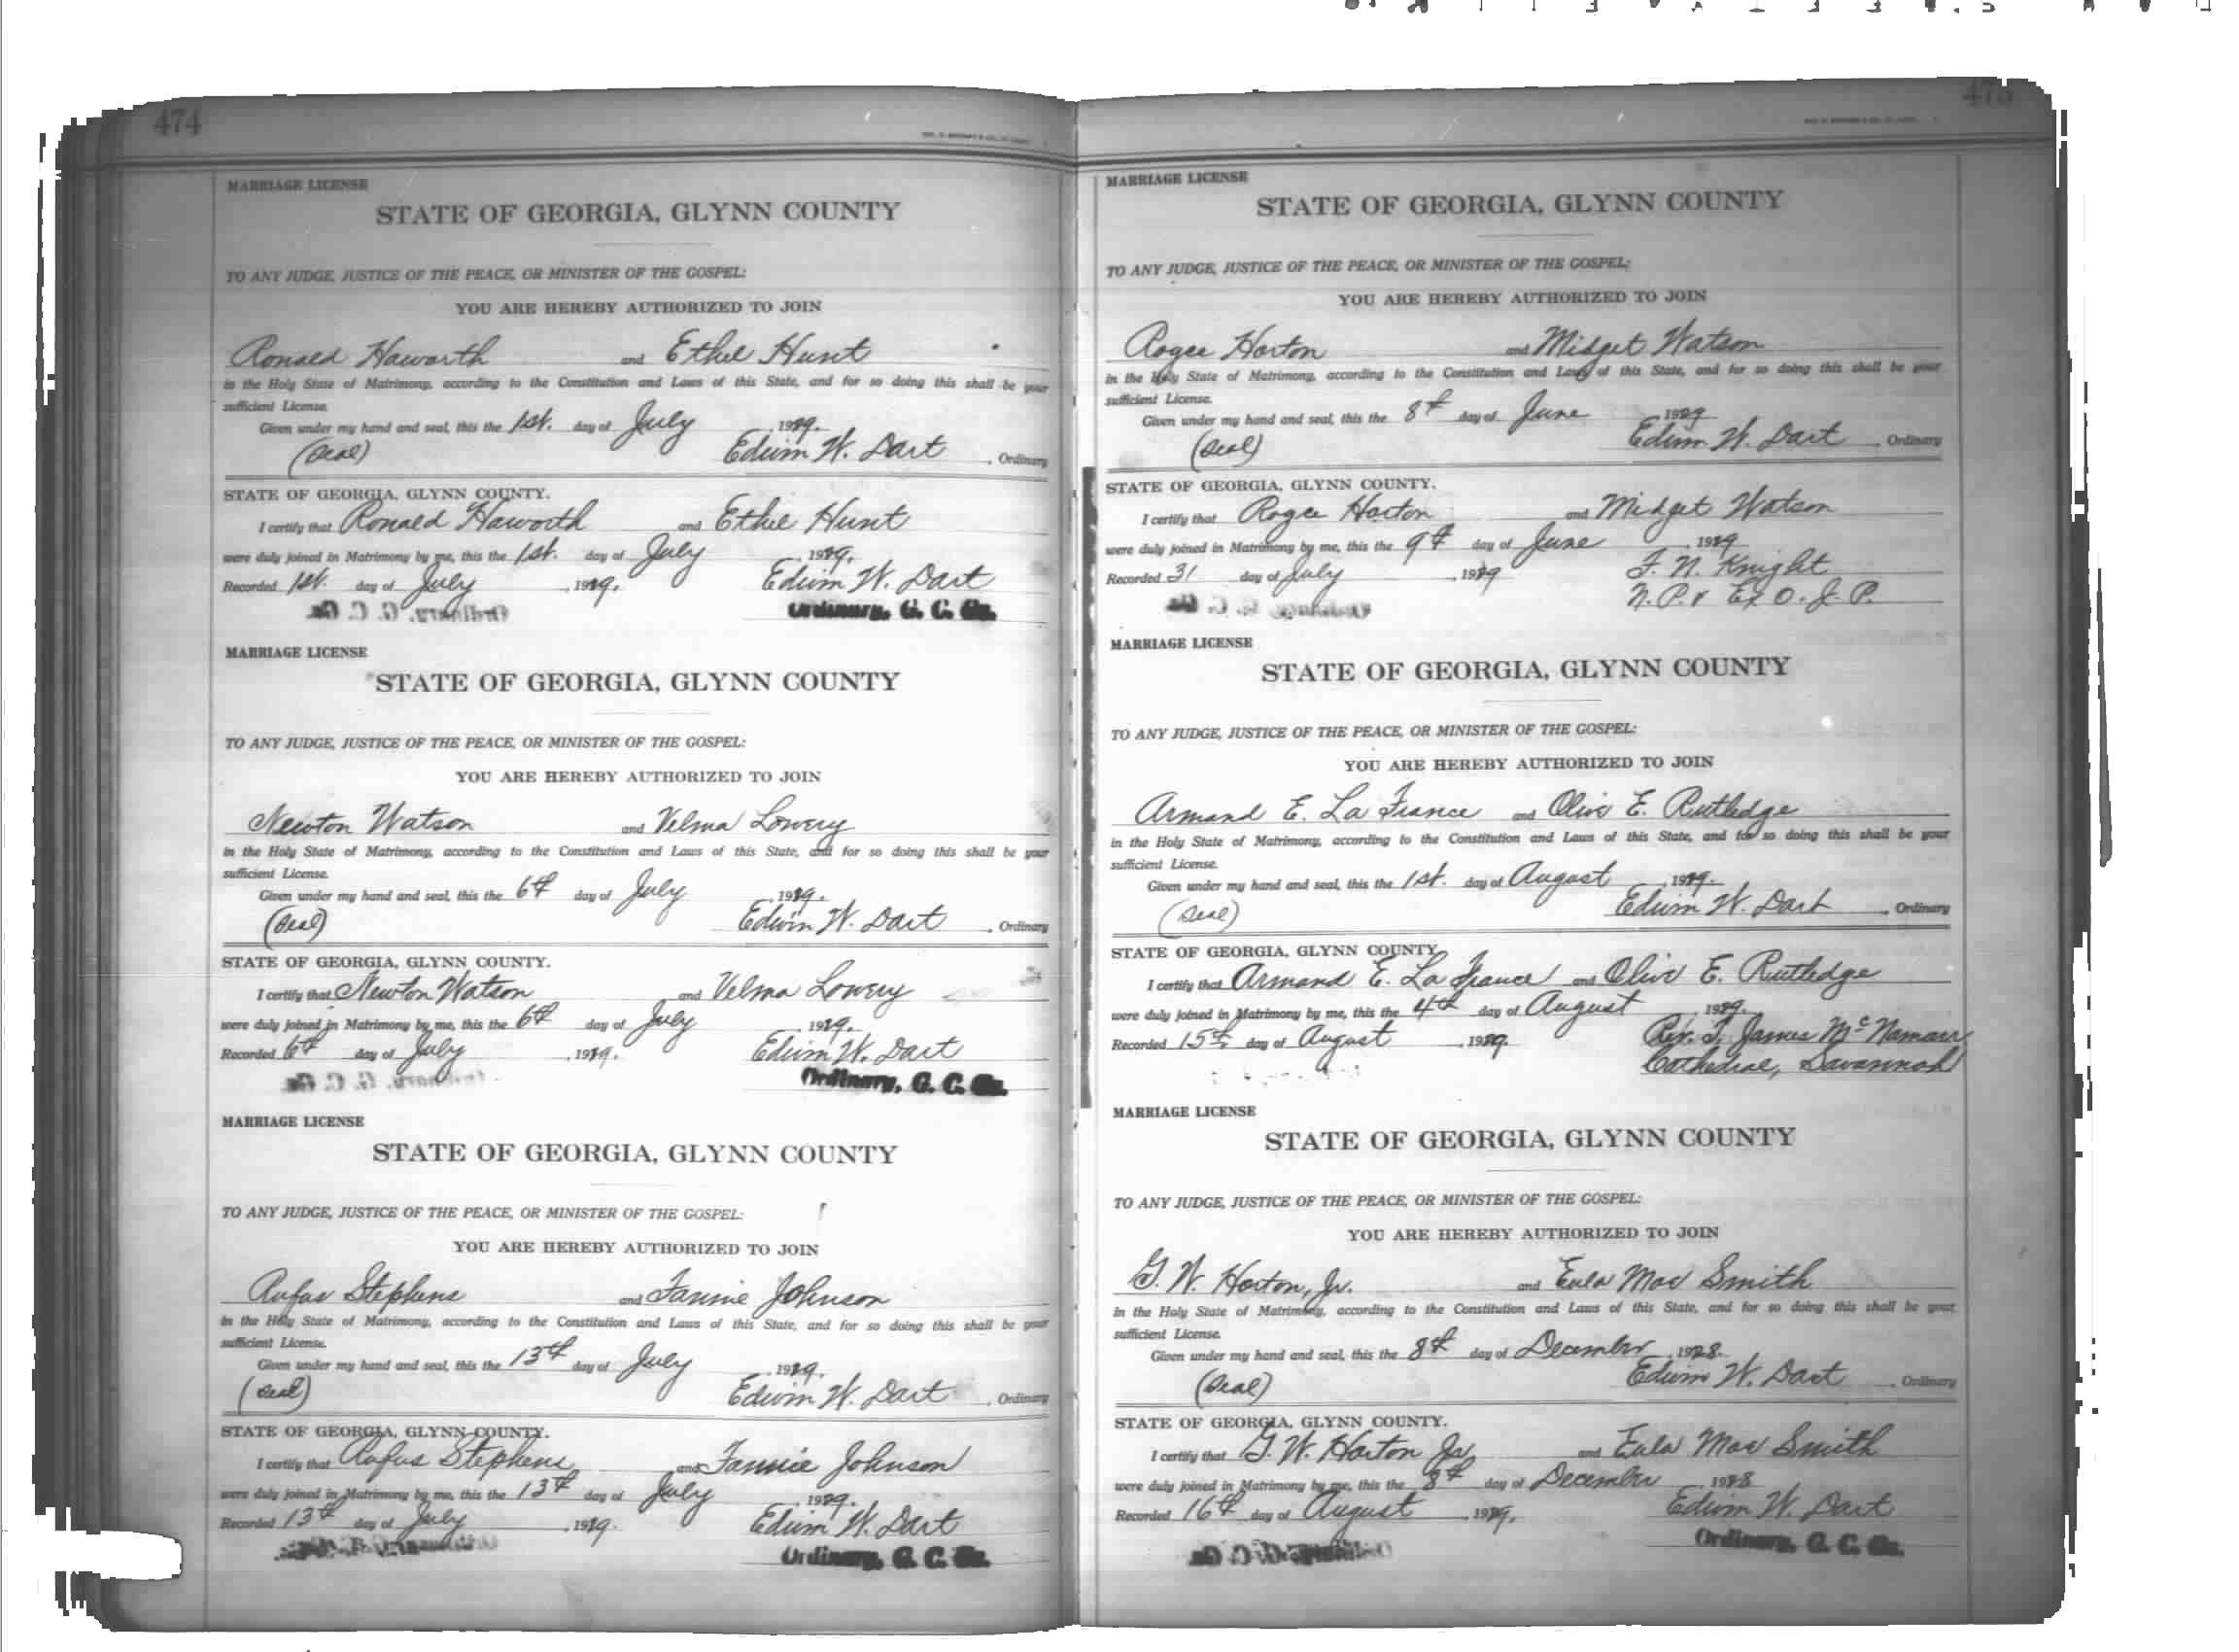 474
MARRIAGE LICENSE
STATE OF GEORGIA, GLYNN COUNTY
TO ANY JUDGE, JUSTICE OF THE PEACE, OR MINISTER OF THE GOSPEL:
YOU ARE HEREBY AUTHORIZED TO JOIN
Ronald Haworth and Ethel Hunt
in the Holy State of Matrimony, according to the Constitution and Laws of this State, and for so doing this shall be your
sufficient License.
Given under my hand and seal, this the 1st. day of July, 1929.
(Seal) Edwin W. Dart, Ordinary
STATE OF GEORGIA, GLYNN COUNTY.
I certify that Ronald Haworth and Ethel Hunt
were duly joined in Matrimony by me, this the 1st. day of July, 1929.
Recorded 1st. day of July, 1929. Edwin W. Dart
Ordinary, G. C. Ga.
MARRIAGE LICENSE
STATE OF GEORGIA, GLYNN COUNTY
TO ANY JUDGE, JUSTICE OF THE PEACE, OR MINISTER OF THE GOSPEL:
YOU ARE HEREBY AUTHORIZED TO JOIN
Newton Watson and Velma Lowery
in the Holy State of Matrimony, according to the Constitution and Laws of this State, and for so doing this shall be your
sufficient License.
Given under my hand and seal, this the 6th day of July, 1929.
(Seal) Edwin W. Dart, Ordinary
STATE OF GEORGIA, GLYNN COUNTY.
I certify that Newton Watson and Velma Lowery
were duly joined in Matrimony by me, this the 6th day of July, 1929.
Recorded 6th day of July, 1929. Edwin W. Dart
Ordinary, G. C. Ga.
MARRIAGE LICENSE
STATE OF GEORGIA, GLYNN COUNTY
TO ANY JUDGE, JUSTICE OF THE PEACE, OR MINISTER OF THE GOSPEL:
YOU ARE HEREBY AUTHORIZED TO JOIN
Rufus Stephens and Fannie Johnson
in the Holy State of Matrimony, according to the Constitution and Laws of this State, and for so doing this shall be your
sufficient License.
Given under my hand and seal, this the 13th day of July, 1929.
(Seal) Edwin W. Dart, Ordinary
STATE OF GEORGIA, GLYNN COUNTY.
I certify that Rufus Stephens and Fannie Johnson
were duly joined in Matrimony by me, this the 13th day of July, 1929.
Recorded 13th day of July, 1929. Edwin W. Dart
Ordinary, G. C. Ga.
475
MARRIAGE LICENSE
STATE OF GEORGIA, GLYNN COUNTY
TO ANY JUDGE, JUSTICE OF THE PEACE, OR MINISTER OF THE GOSPEL:
YOU ARE HEREBY AUTHORIZED TO JOIN
Roger Horton and Midget Watson
in the Holy State of Matrimony, according to the Constitution and Laws of this State, and for so doing this shall be your
sufficient License.
Given under my hand and seal, this the 8th day of June 1929
(Seal) Edwin W. Dart, Ordinary
STATE OF GEORGIA, GLYNN COUNTY.
I certify that Roger Horton and Midget Watson
were duly joined in Matrimony by me, this the 9th day of June, 1929
Recorded 31 day of July, 1929 F. N. Knight
N.P. & Ex O. J. P.
MARRIAGE LICENSE
STATE OF GEORGIA, GLYNN COUNTY
TO ANY JUDGE, JUSTICE OF THE PEACE, OR MINISTER OF THE GOSPEL:
YOU ARE HEREBY AUTHORIZED TO JOIN
Armand E. La France and Olive E. Rutledge
in the Holy State of Matrimony, according to the Constitution and Laws of this State, and for so doing this shall be your
sufficient License.
Given under my hand and seal, this the 1st. day of August, 1929.
(Seal) Edwin W. Dart, Ordinary
STATE OF GEORGIA, GLYNN COUNTY.
I certify that Armand E. La France and Olive E. Rutledge
were duly joined in Matrimony by me, this the 4th day of August, 1929.
Recorded 15th day of August, 1929. Rev. T. James McNamara
Cathedral, Savannah
MARRIAGE LICENSE
STATE OF GEORGIA, GLYNN COUNTY
TO ANY JUDGE, JUSTICE OF THE PEACE, OR MINISTER OF THE GOSPEL:
YOU ARE HEREBY AUTHORIZED TO JOIN
G. W. Horton, Jr. and Eula Mae Smith
in the Holy State of Matrimony, according to the Constitution and Laws of this State, and for so doing this shall be your
sufficient License.
Given under my hand and seal, this the 8th day of December, 1928.
(Seal) Edwin W. Dart, Ordinary
STATE OF GEORGIA, GLYNN COUNTY.
I certify that G. W. Horton Jr. and Eula Mae Smith
were duly joined in Matrimony by me, this the 8th day of December, 1928
Recorded 16th day of August, 1929. Edwin W. Dart
Ordinary, G. C. Ga.